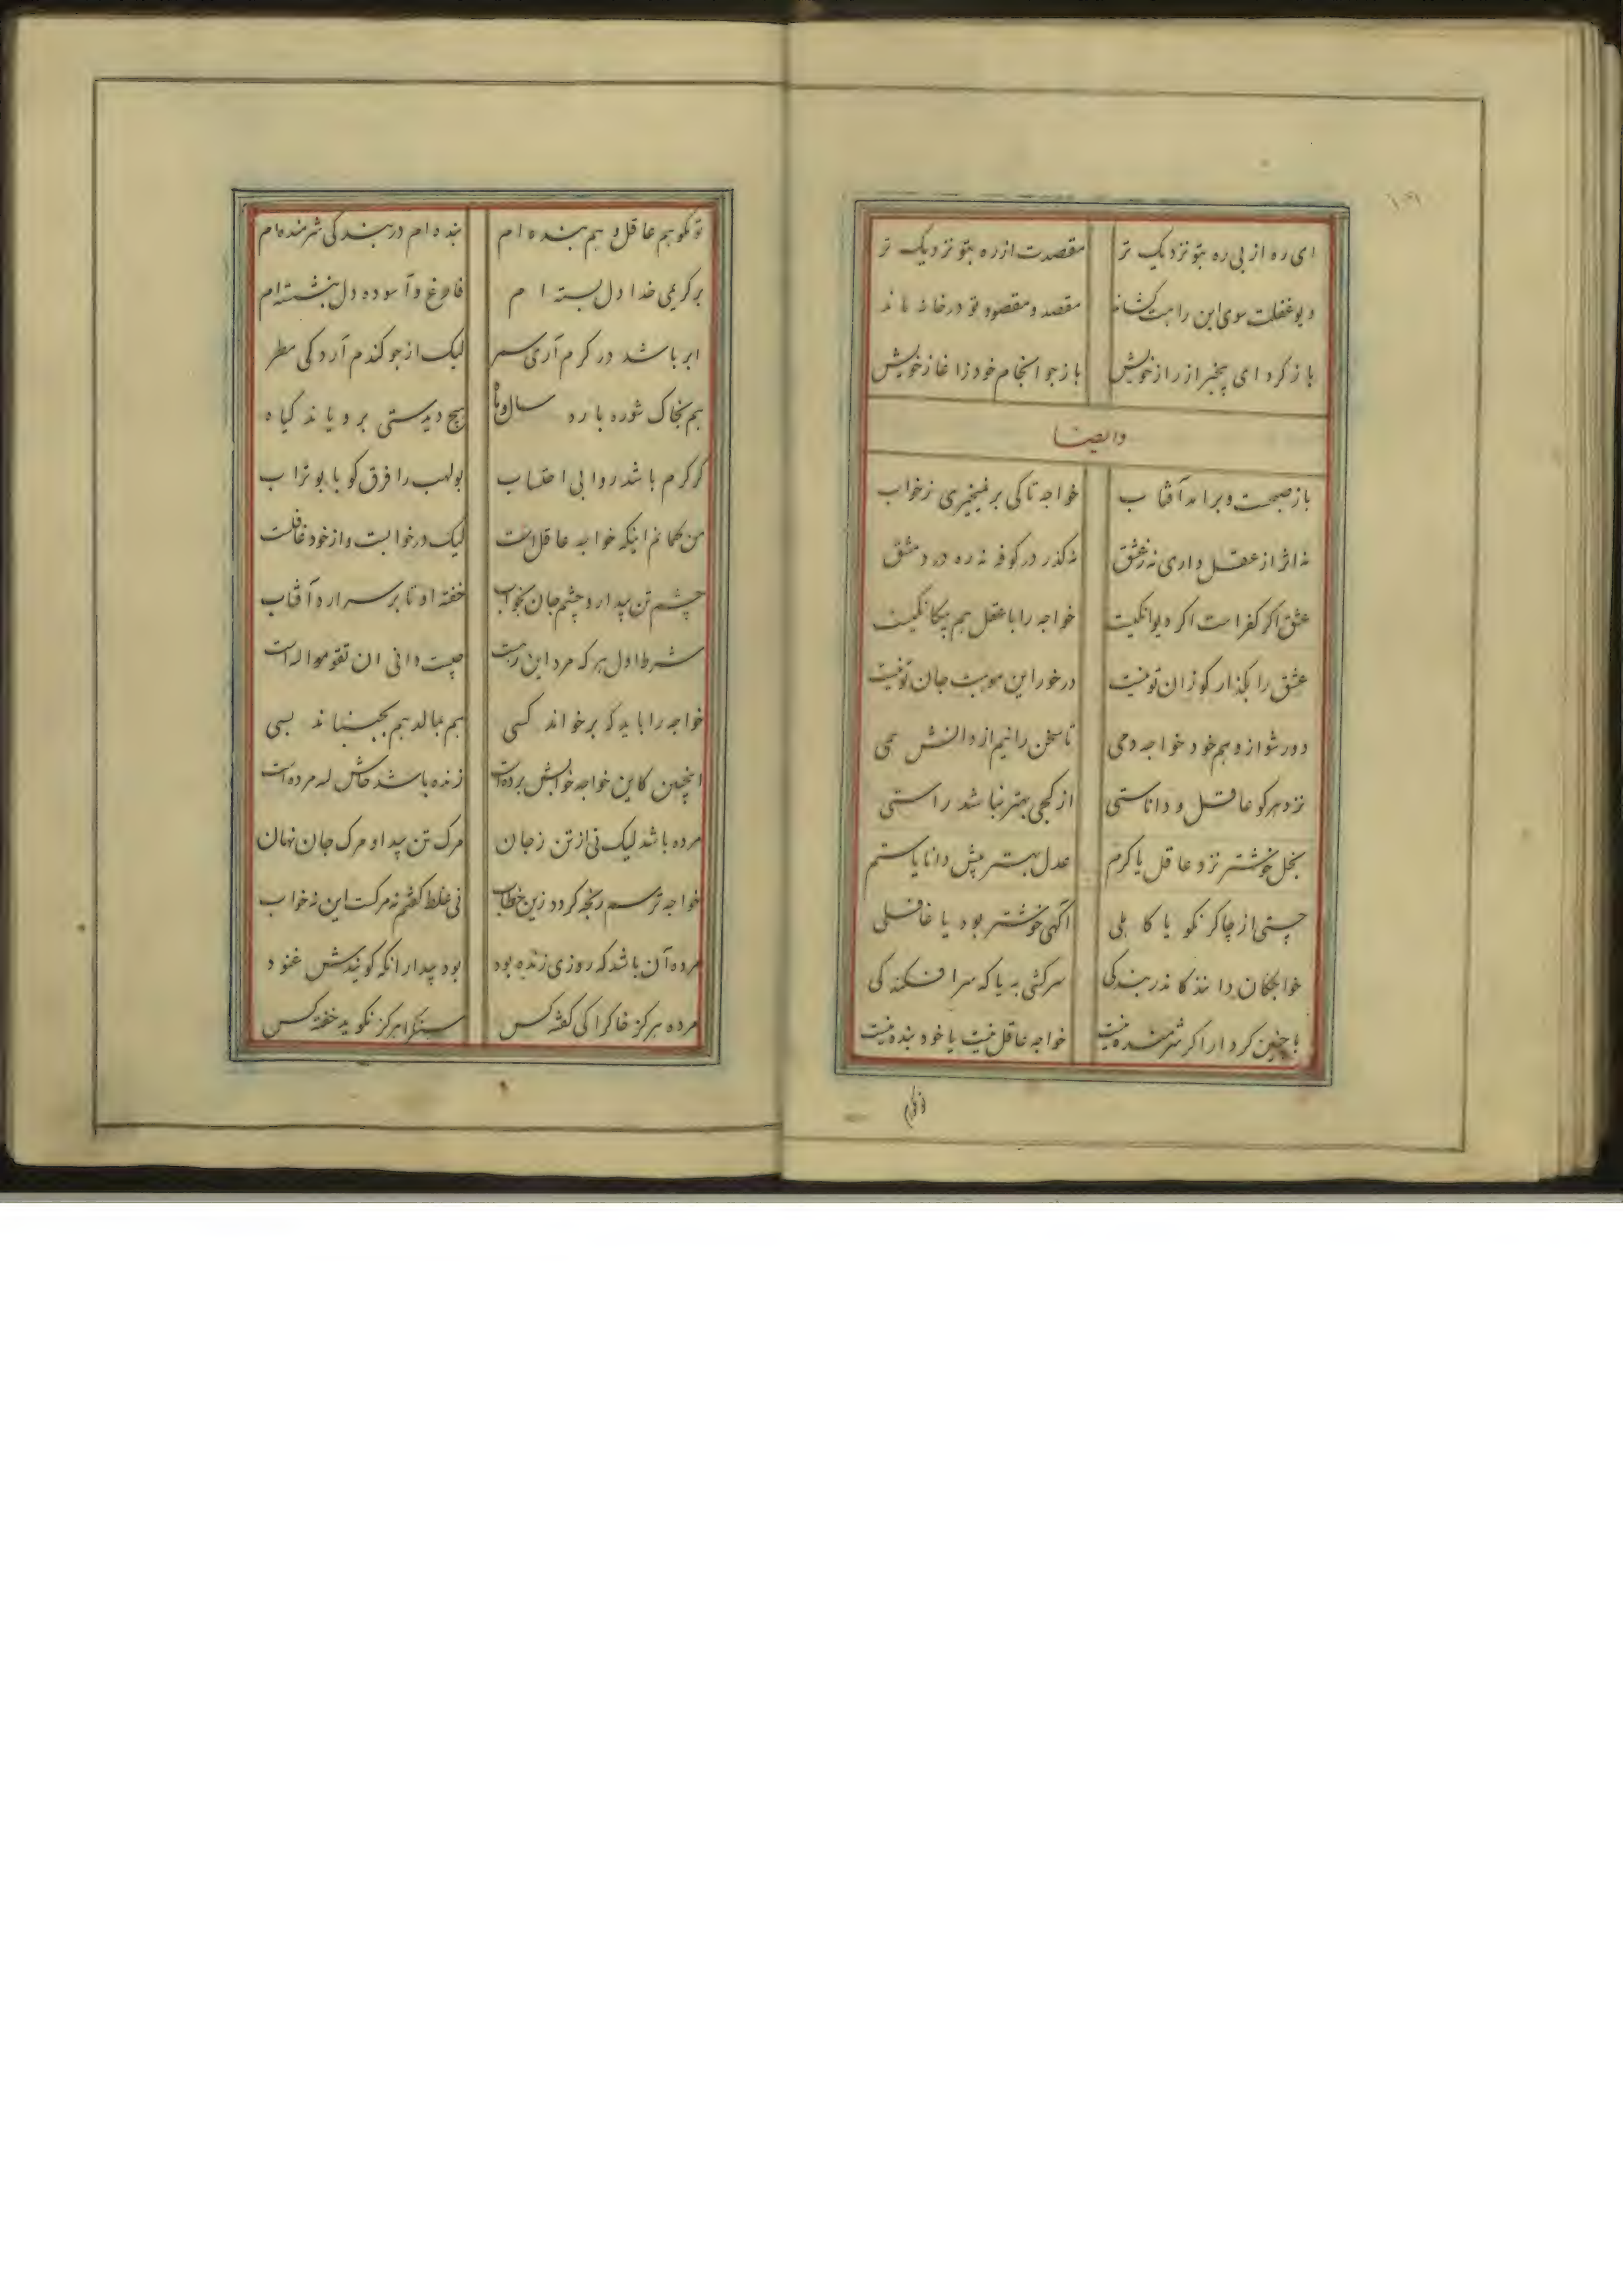 ای ره از بی ره بتو نزدیک تر مقصدت از ره بتو نزدیک تر
دیو غفلت سوی این راهت کشاند مقصد و مقصود تو در خانه ماند
باز کرد ای بیخبر از راز خویش باز جو انجام خود زاغاز خویش
وایضا
باز صبحست و برامد آفتاب خواجه تا کی برنمیخیزی زخواب
نه اثر از عقل داری نه زعشق نه کذر در کوفه نه ره در دمشق
عشق اکر کفر است اکر دیوانکیست خواجه را با عقل هم بیکانکیست
عشق را بکذار کو زان تو نیست در خور این موهبت جان تو نیست
دور شو از وهم خود خواجه دمی تا سخن رانیم از دانش همی
نزد هر کو عاقل و داناستی از کجی بهتر نباشد راستی
بخل خوشتر نزد عاقل یا کرم عدل بهتر پیش دانا یا ستم
چستی از چاکر نکو یا کاهلی آکهی خوشتر بود یا غافلی
خواجکان دانند کاندر بندکی سرکشی به یا که سر افکندکی
با چنین کردار اکر شرمنده نیست خواجه عاقل نیست یا خود بنده نیست
تو نکو هم عاقل و هم بنده ام بنده ام در بندکی شرمنده ام
بر کریمی خدا دل بسته ام فارغ و آسوده دل بنشسته ام
ابر باشد در کرم آری سمر لیک از جو کندم آرد کی مطر
هم بخاک شوره بارد سال و ماه هیچ دیدستی برویاند کیاه
کر کرم باشد روا بی احتساب بولهب را فرق کو با بوتراب
من کمانم اینکه خواجه عاقل است لیک در خوابست و از خود غافلست
چشم تن بیدار و چشم جان بخواب خفته او تا بر سر ارد آفتاب
شرط اول هر که مرد این رهست چیست دانی ان تقوموا لله است
خواجه را باید که برخواند کسی هم بمالد هم بجنباند بسی
اینچنین کاین خواجه خوابش برده است زنده باشد حاش لله مرده است
مرده باشد لیک نی از تن زجان مرک تن پیدا و مرک جان نهان
خواجه ترسم رنجه کردد زین خطاب نی غلط کفتم نه مرکست این نه خواب
مرده آن باشد که روزی زنده بود بود بیدار انکه کویندش غنود
مرده هرکز خاک را کی کفته کس سنک را هرکز نکوید خفته کس